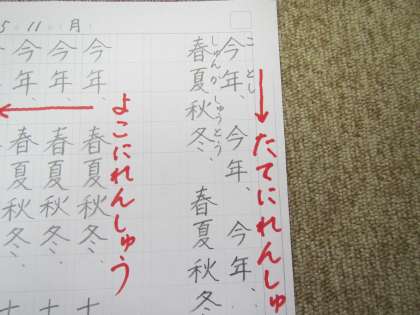 5 11 月
たてにれんしゅ
ことし
今年、今年、今年、
しゅんかしゅうとう
春夏秋冬、春夏秋冬
よこにれんしゅう
今年、春夏秋冬、
今年、春夏秋冬、
今年、春夏秋冬、